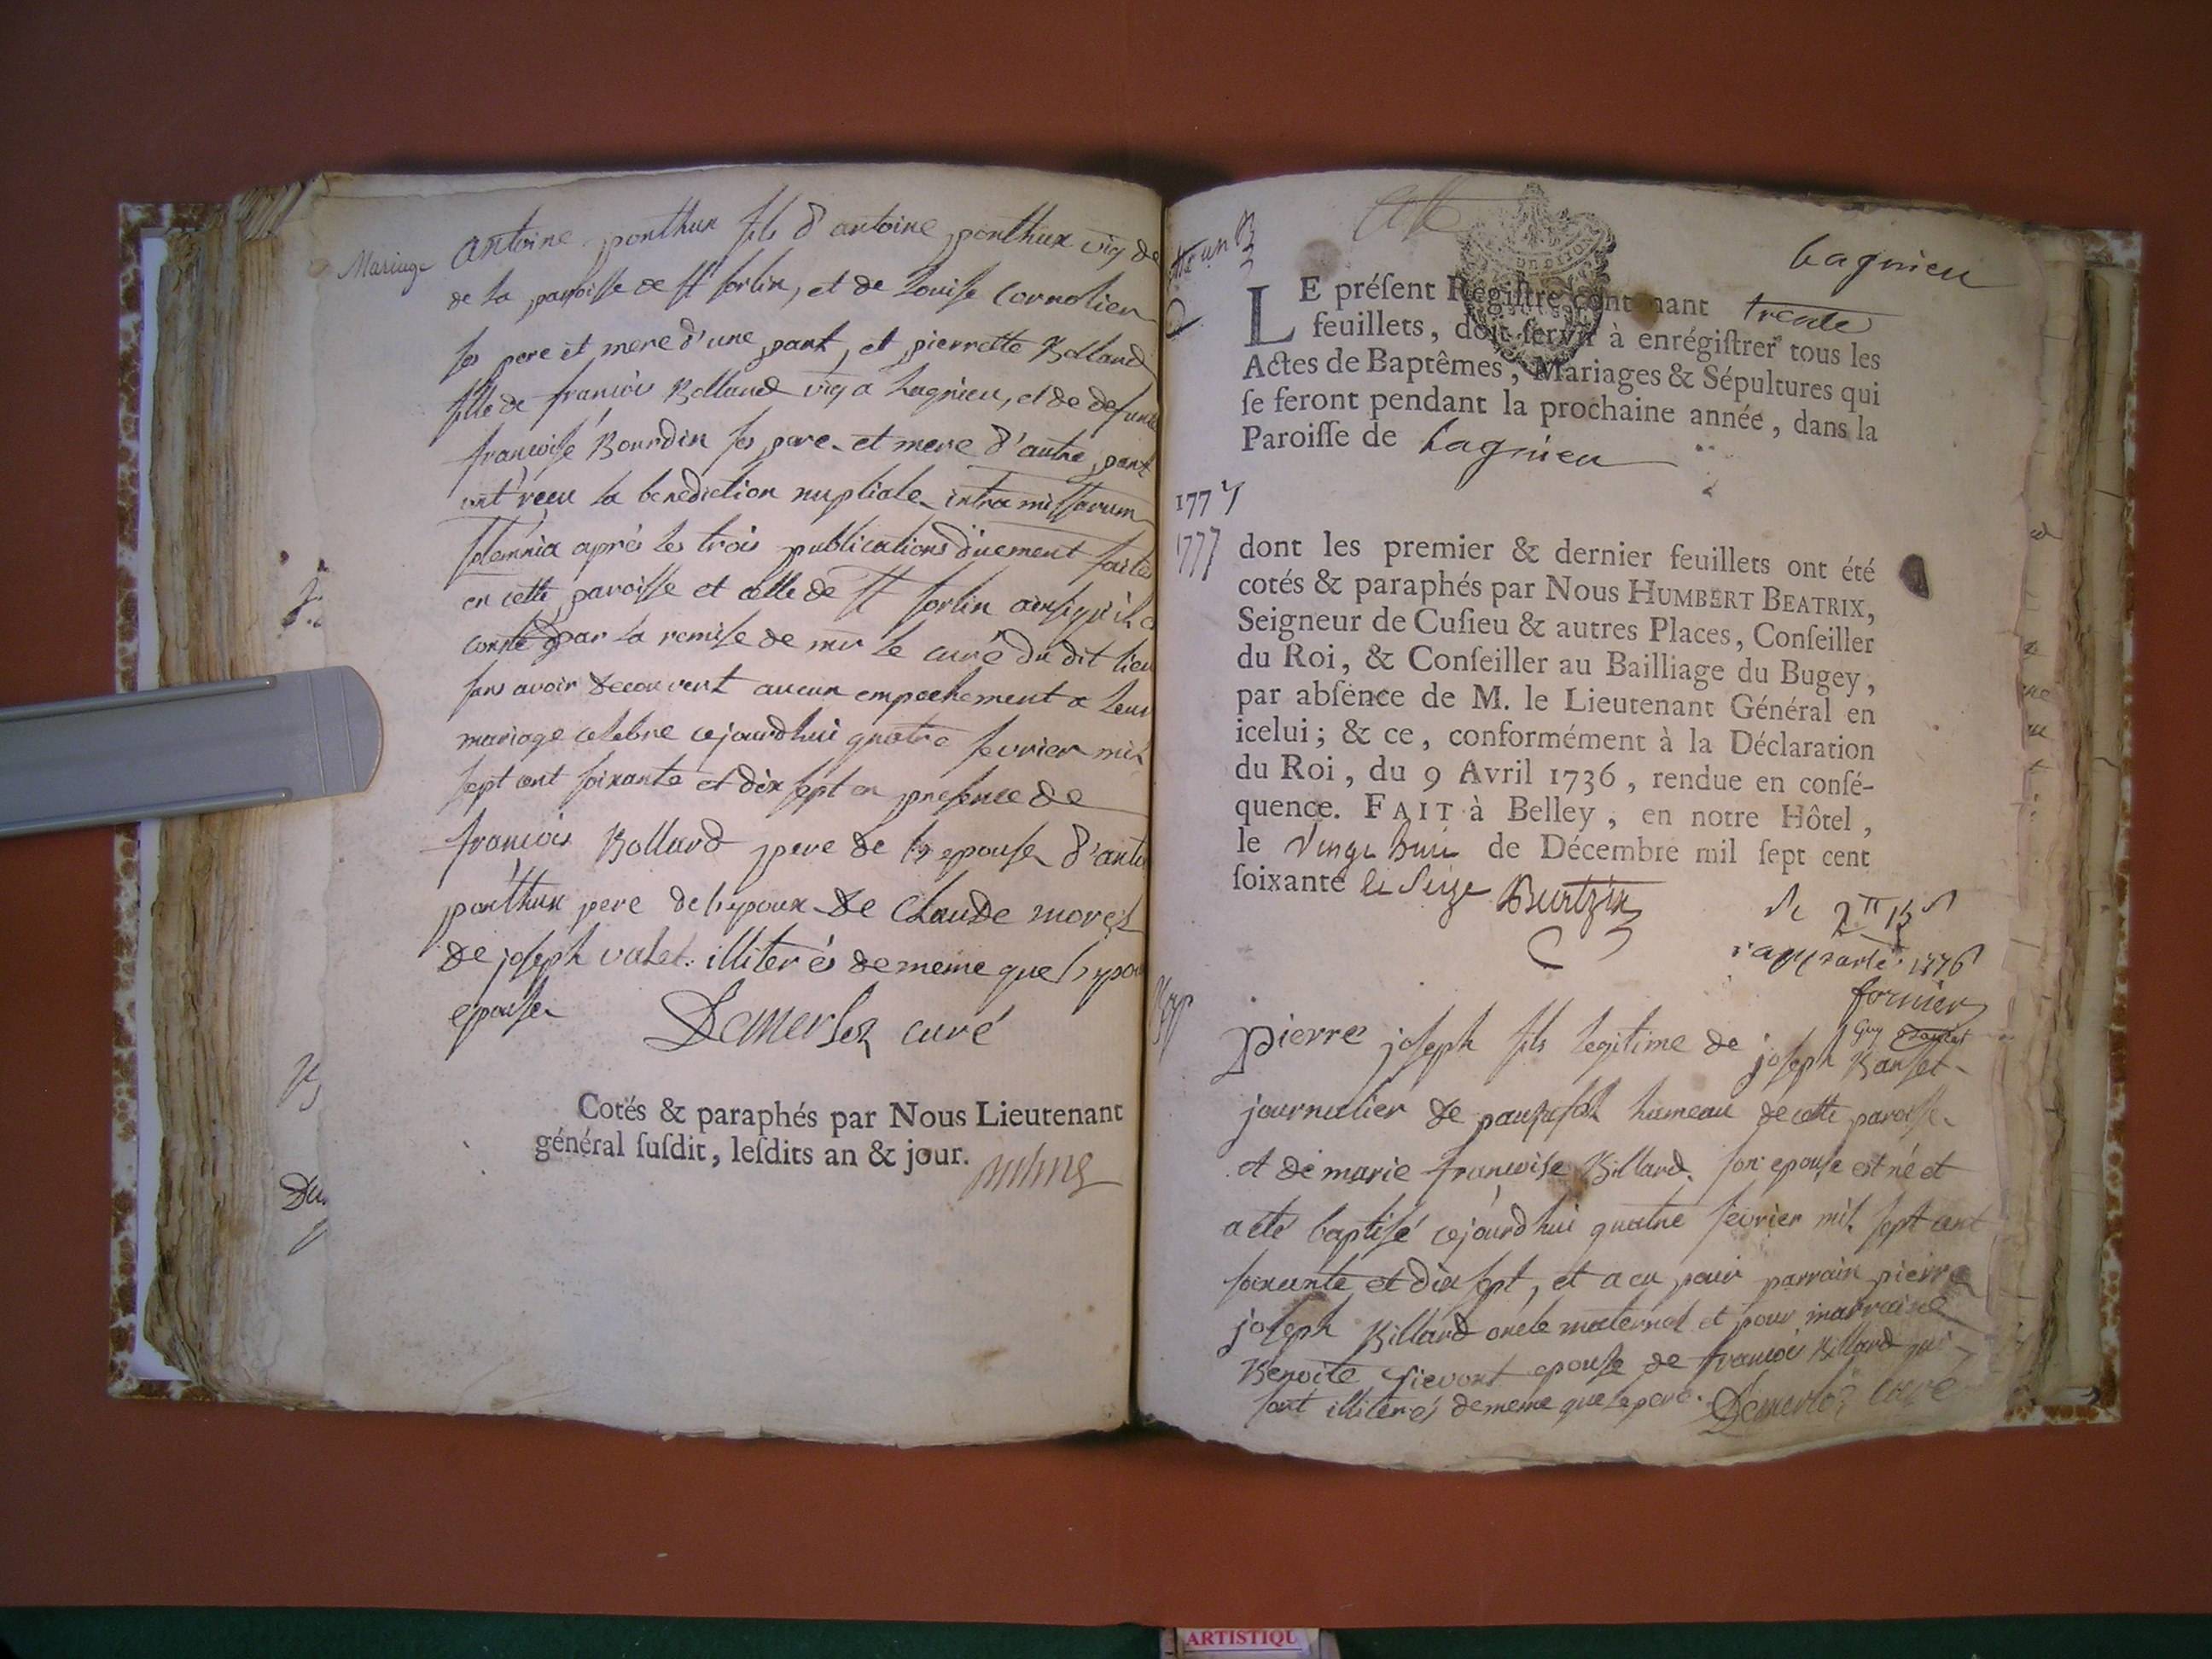 Mariage
antoine ponthus fils d'antoine ponthus vig de
de la paroisse de st sorlin, et de Louise Cornolier
ses pere et mere d'une part, et pierrette Bolland
fille de francois Bolland vig a Lagnieu, et de defunte
francoise Bourdin ses pere et mere d'autre part
ont reçu la benediction nuptiale intra missarum
solemnia après les trois publications duement faites
en cette paroisse et celle de st sorlin ainsi qu'il
conste par la remise de mr le curé du dit lieu
sans avoir decouvert aucun empechement a leur
mariage celebre cejourd'hui quatre fevrier mil
sept cent soixante et dix sept en presence de
francois Bollard pere de l'epouse d'anto
ponthus pere de l'epoux de Claude morel
de joseph valet illiterés de meme que l'epou
epouse
Demerloz curé
Cotés & paraphés par Nous Lieutenant
général susdit, lesdits an & jour.
Lagnieu
LE présent Registre contenant trente
feuillets, doit servir à enrégistrer tous les
Actes de Baptêmes, Mariages & Sépultures qui
se feront pendant la prochaine année, dans la
Paroisse de Lagnieu
1777
1777
dont les premier & dernier feuillets ont été
cotés & paraphés par Nous HUMBERT BEATRIX,
Seigneur de Cusieu & autres Places, Conseiller
du Roi, & Conseiller au Bailliage du Bugey,
par absence de M. le Lieutenant Général en
icelui ; & ce, conformément à la Déclaration
du Roi, du 9 Avril 1736, rendue en consé-
quence. FAIT à Belley, en notre Hôtel,
le vingt huit de Décembre mil sept cent
soixante & seize
1776
fornier
Guy
pierre joseph fils legitime de joseph Banset
journalier de hameau de cette paroisse
et de marie francoise Billard son epouse est né et
a eté baptisé cejourd'hui quatre fevrier mil sept cent
soixante et dix sept, et a eu pour parrain pierre
joseph Billard oncle maternel et pour marraine
Benoite epouse de francois Billard qui
sont illiterés de meme que le pere. Demerloz curé
ARTISTIQU